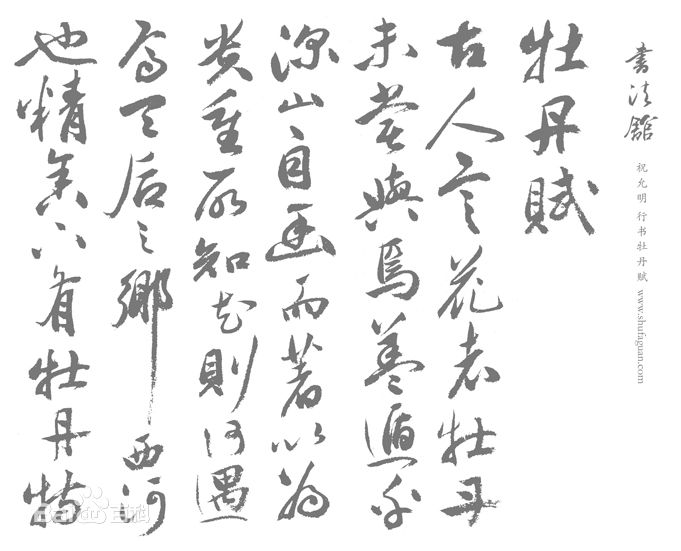 書法館
祝允明 行书牡丹赋 www.shufaguan.com
牡丹賦
古人言花者牡丹
未嘗與焉蓋遁乎
深山自幽而著以為
貴重所知花則何遇
焉天后之鄉西河
也精舍下有牡丹特
Baidu百科